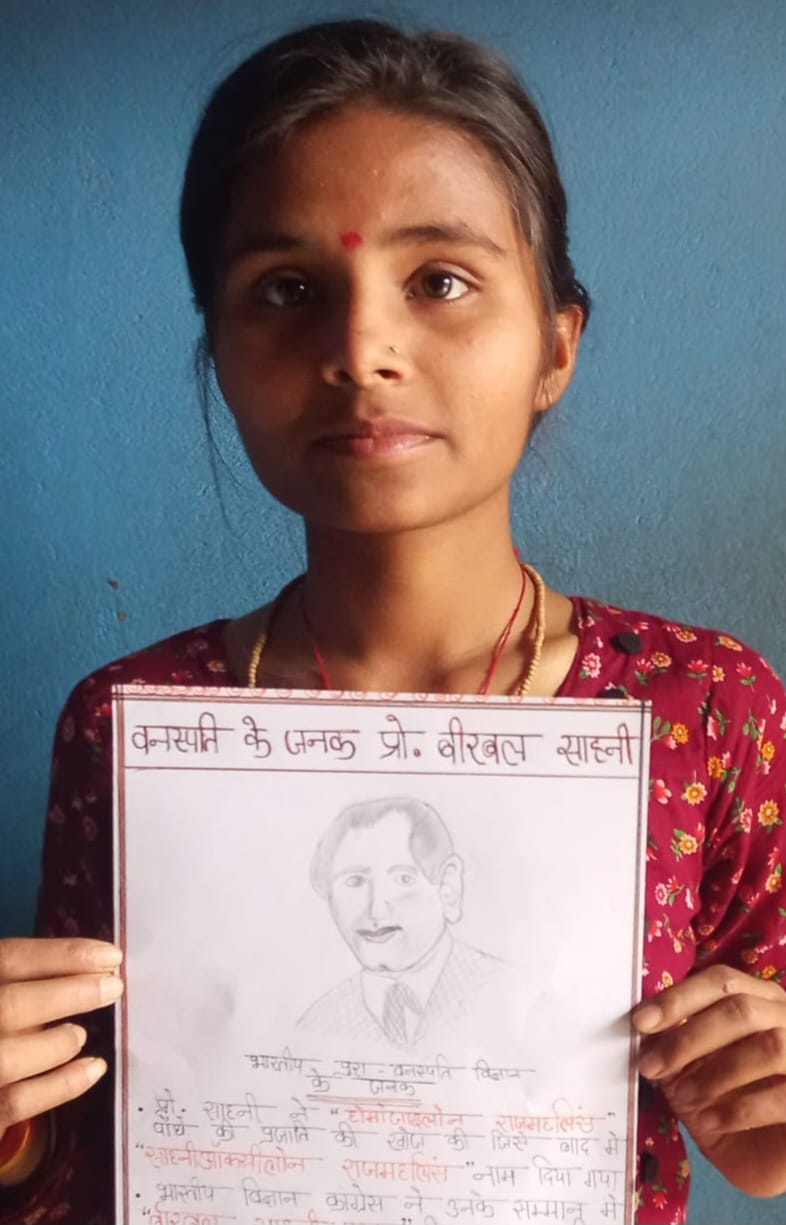 वनस्पति के जनक प्रो. बीरबल साहनी
भारतीय पुरा - वनस्पति विज्ञान
के जनक
• प्रो. साहनी ने "होमोजाइलोन राजमहलिंस"
पौधे की प्रजाति की खोज की जिसे बाद में
"साहनीऑक्सीलोन राजमहलिंस" नाम दिया गया
• भारतीय विज्ञान कांग्रेस ने उनके सम्मान में
"बीरबल